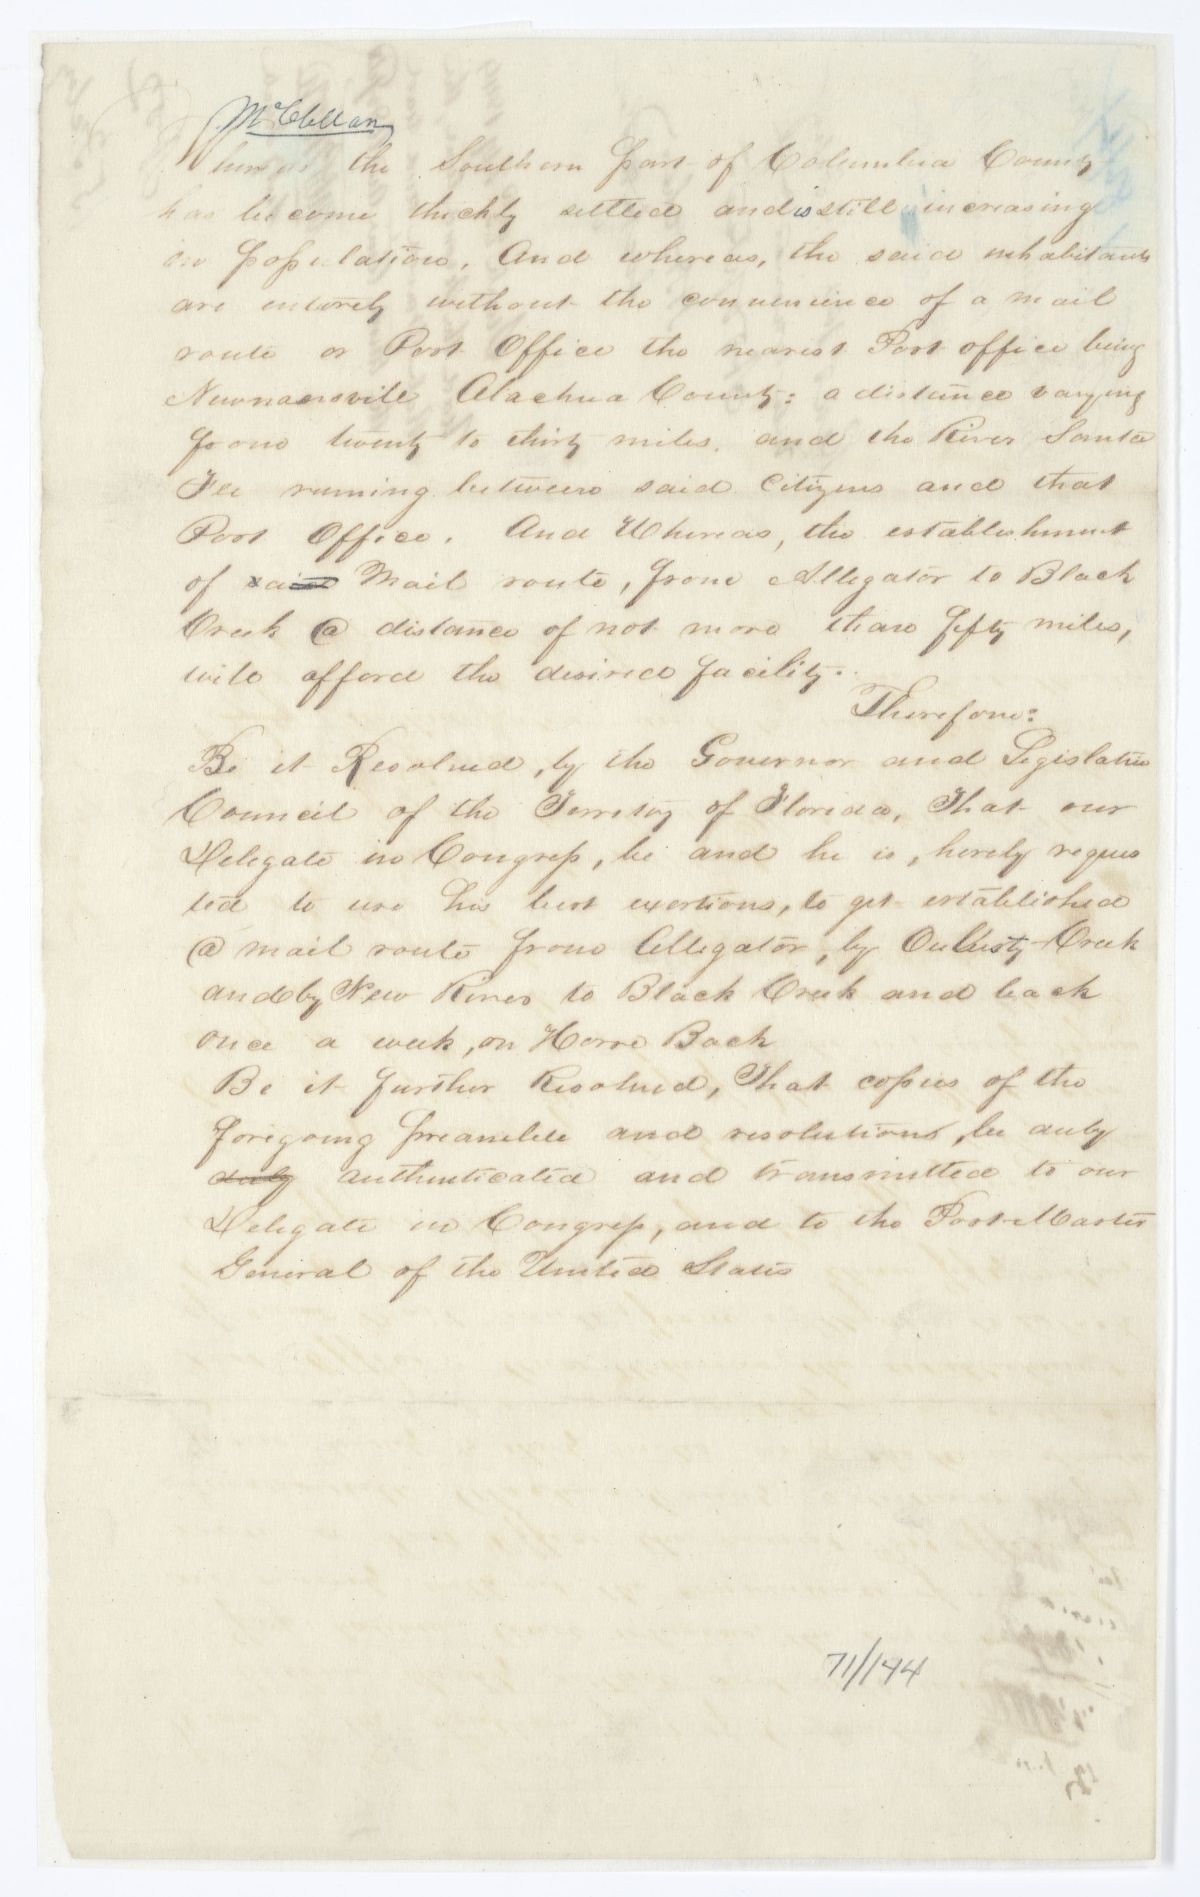 McClellan
Whereas the Southern part of Columbia County
has become thickly settled and is still increasing
in population. And whereas, the said inhabitants
are entirely without the convenience of a mail
route or Post Office the nearest Post office being
Newnansville Alachua County: a distance varying
from twenty to thirty miles. and the River Santa
Fee running between said Citizens and that
Post Office. And Whereas, the establishment
of said Mail route, from Alligator to Black
Creek @ distance of not more than fifty miles,
will afford the desired facility.
Therefore:
Be it Resolved, by the Governor and Legislative
Council of the Territory of Florida, That our
Delegate in Congress, be and he is, hereby reques
ted to use his best exertions, to get established
@ mail route from Alligator, by Oulusty Creek
and by New River to Black Creek and back
once a week, on Horse Back
Be it further Resolved, That copies of the
foregoing preamble and resolutions, be duly
duly authenticated and transmitted to our
Delegate in Congress, and to the Post-Master
General of the United States
71/144